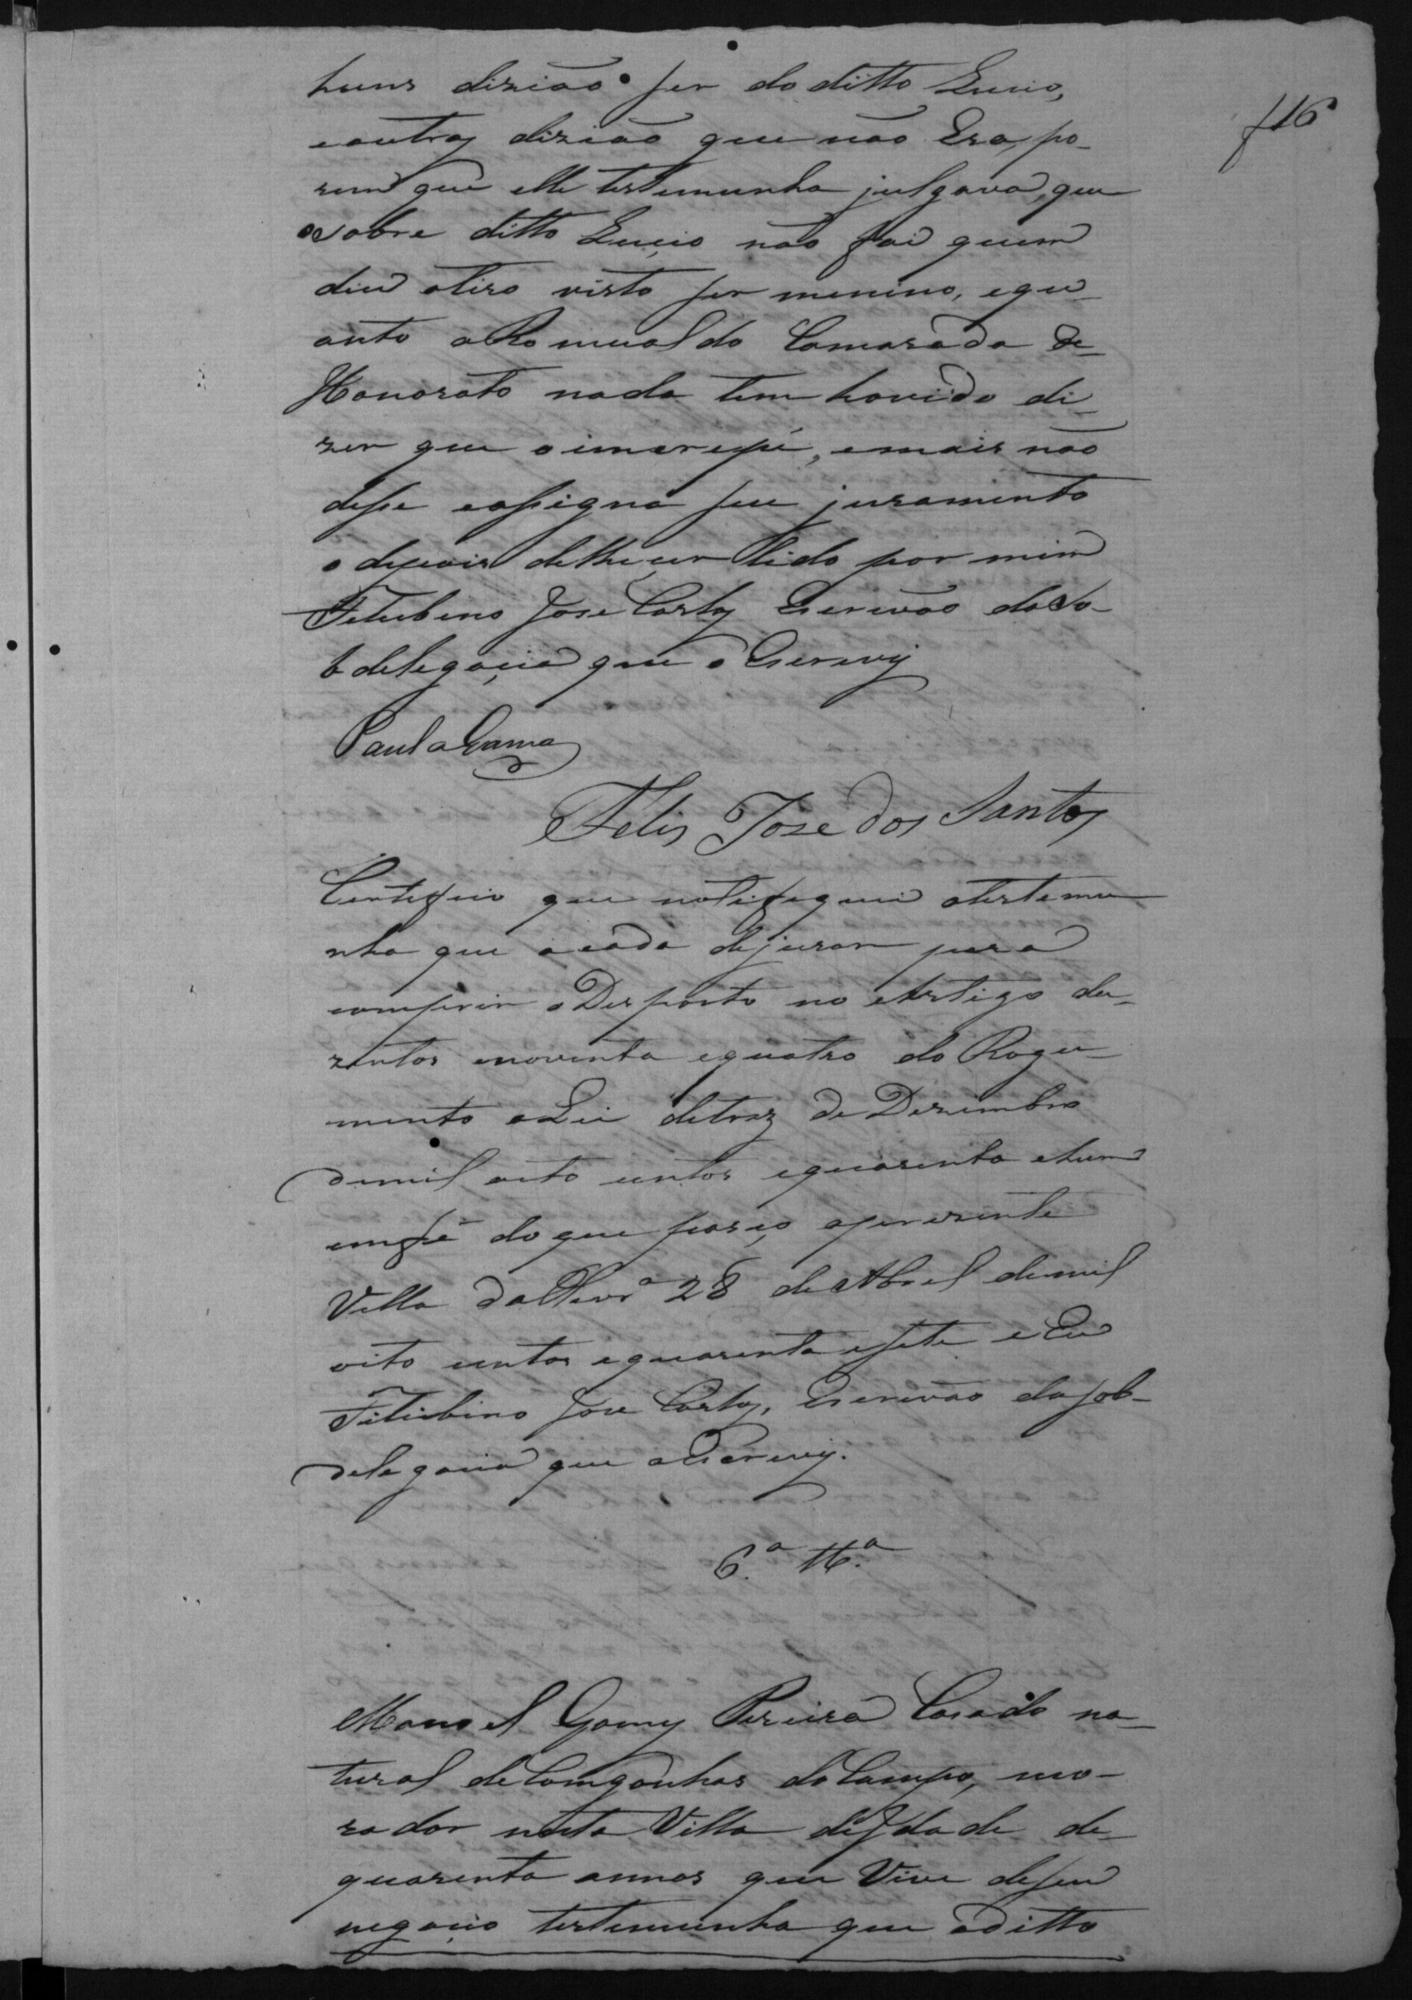 f 16
huns dizião ser do ditto Lucio,
eoutros dizião que não Era, po-
rem que elle testemunha julgava, que
osobre ditto Lucio não foi quem
deu otiro visto ser menino, equ-
anto aRomualdo Camarada de
Honorato nada tem houvido di-
zer que o
, emais não
disse eassigna seu juramento
o depois delhe ser lido por mim
Felisbino Jose Cortes Escrivão daSo-
bdelegacia que o Escrevy
Paula Gama
Felis Joze dos Santos
Certefico que notefiquei atestemu
nha que acada dejurar para
comprir oDesposto no Artigo du-
zentos enoventa equatro do Rogu-
mento eLei detrez de Dezembro
demil oito centos equarenta ehum
emfé do que passo aprezente
Villa da 28 de Abril demil
oito centos equarenta esete e Eu
Felisbino Jose Cortes, Escrivão da Sob-
delegacia que oEscrevy.
6.ª Tt.ª
Manoel Gomes Pereira Casado na-
tural deComgonhas doCampo, mo-
rador nesta Villa deJdade de
quarenta annos que Vive deseu
negocio testemunha que aditto